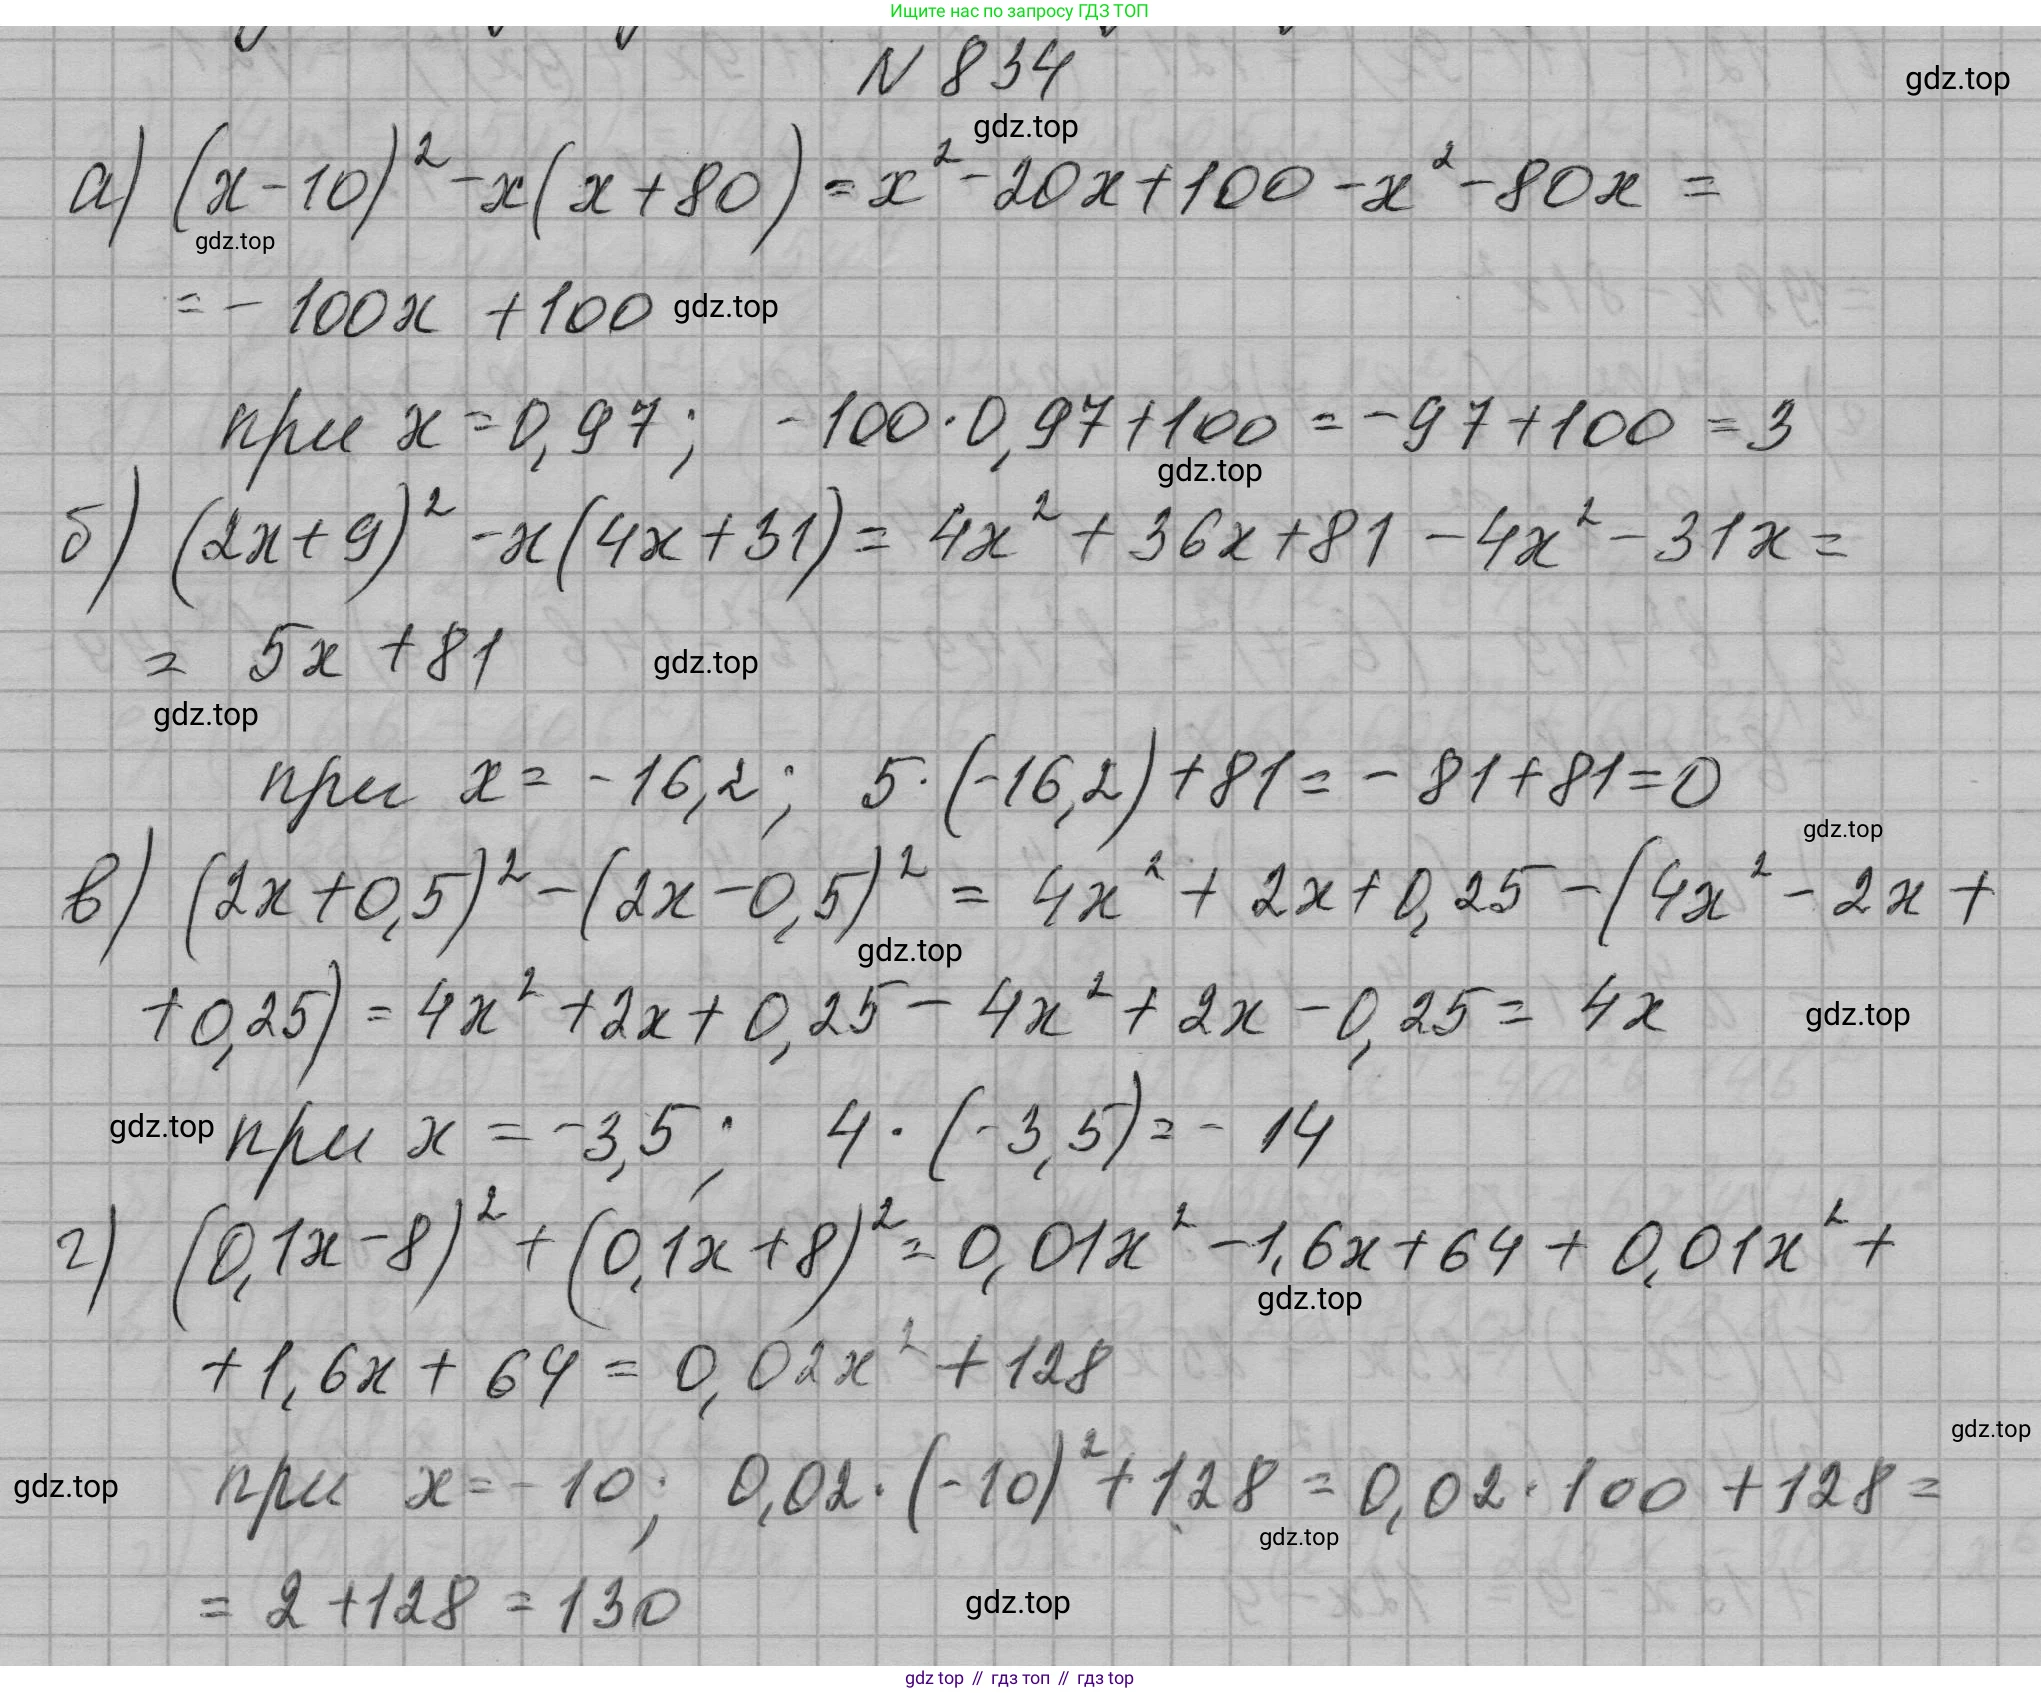 Ищите нас по запросу ГДЗ ТОП
N 834
gdz.top
gdz.top
а) (x-10)² -x(x+80) = x² -20x+100 -x² -80x =
gdz.top
= - 100x +100 gdz.top
при x=0,97; -100·0,97+100 = -97+100 = 3
gdz.top
б) (2x+9)² -x(4x+31) = 4x² + 36x+81 -4x² -31x =
= 5x +81 gdz.top
gdz.top
при x = -16,2; 5·(-16,2)+81 = -81+81=0
gdz.top
в) (2x+0,5)² -(2x-0,5)² = 4x² + 2x+0,25 -(4x² - 2x +
gdz.top
+0,25) = 4x² +2x+0,25 - 4x² + 2x -0,25 = 4x gdz.top
gdz.top при x = -3,5; 4·(-3,5) = -14
г) (0,1x-8)² + (0,1x+8)² = 0,01x² -1,6x+64 + 0,01x² +
gdz.top
+1,6x + 64 = 0,02x² +128
gdz.top
gdz.top при x = -10; 0,02·(-10)² +128 = 0,02·100 +128 =
gdz.top
= 2 +128 = 130 gdz.top
gdz top // гдз топ // гдз top